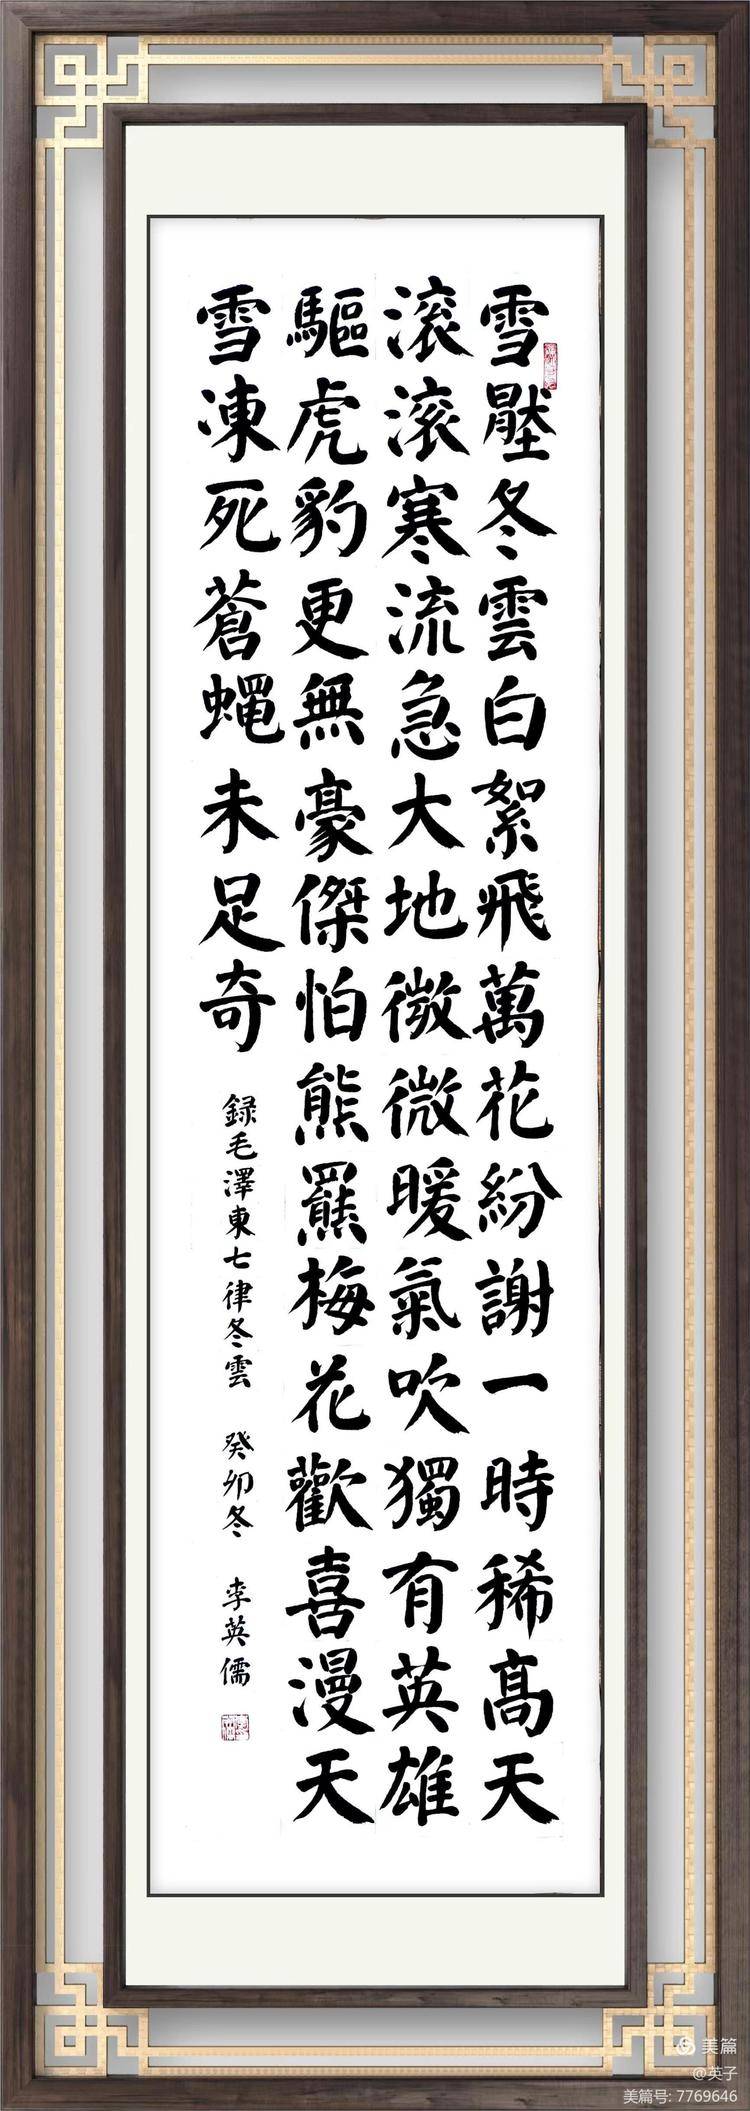 雪壓冬雲白絮飛萬花紛謝一時稀高天
滚滚寒流急大地微微暖氣吹獨有英雄
驅虎豹更無豪傑怕熊羆梅花歡喜漫天
雪凍死蒼蝇未足奇
録毛澤東七律冬雲 癸卯冬 李英儒
美篇
@英子
美篇号: 7769646